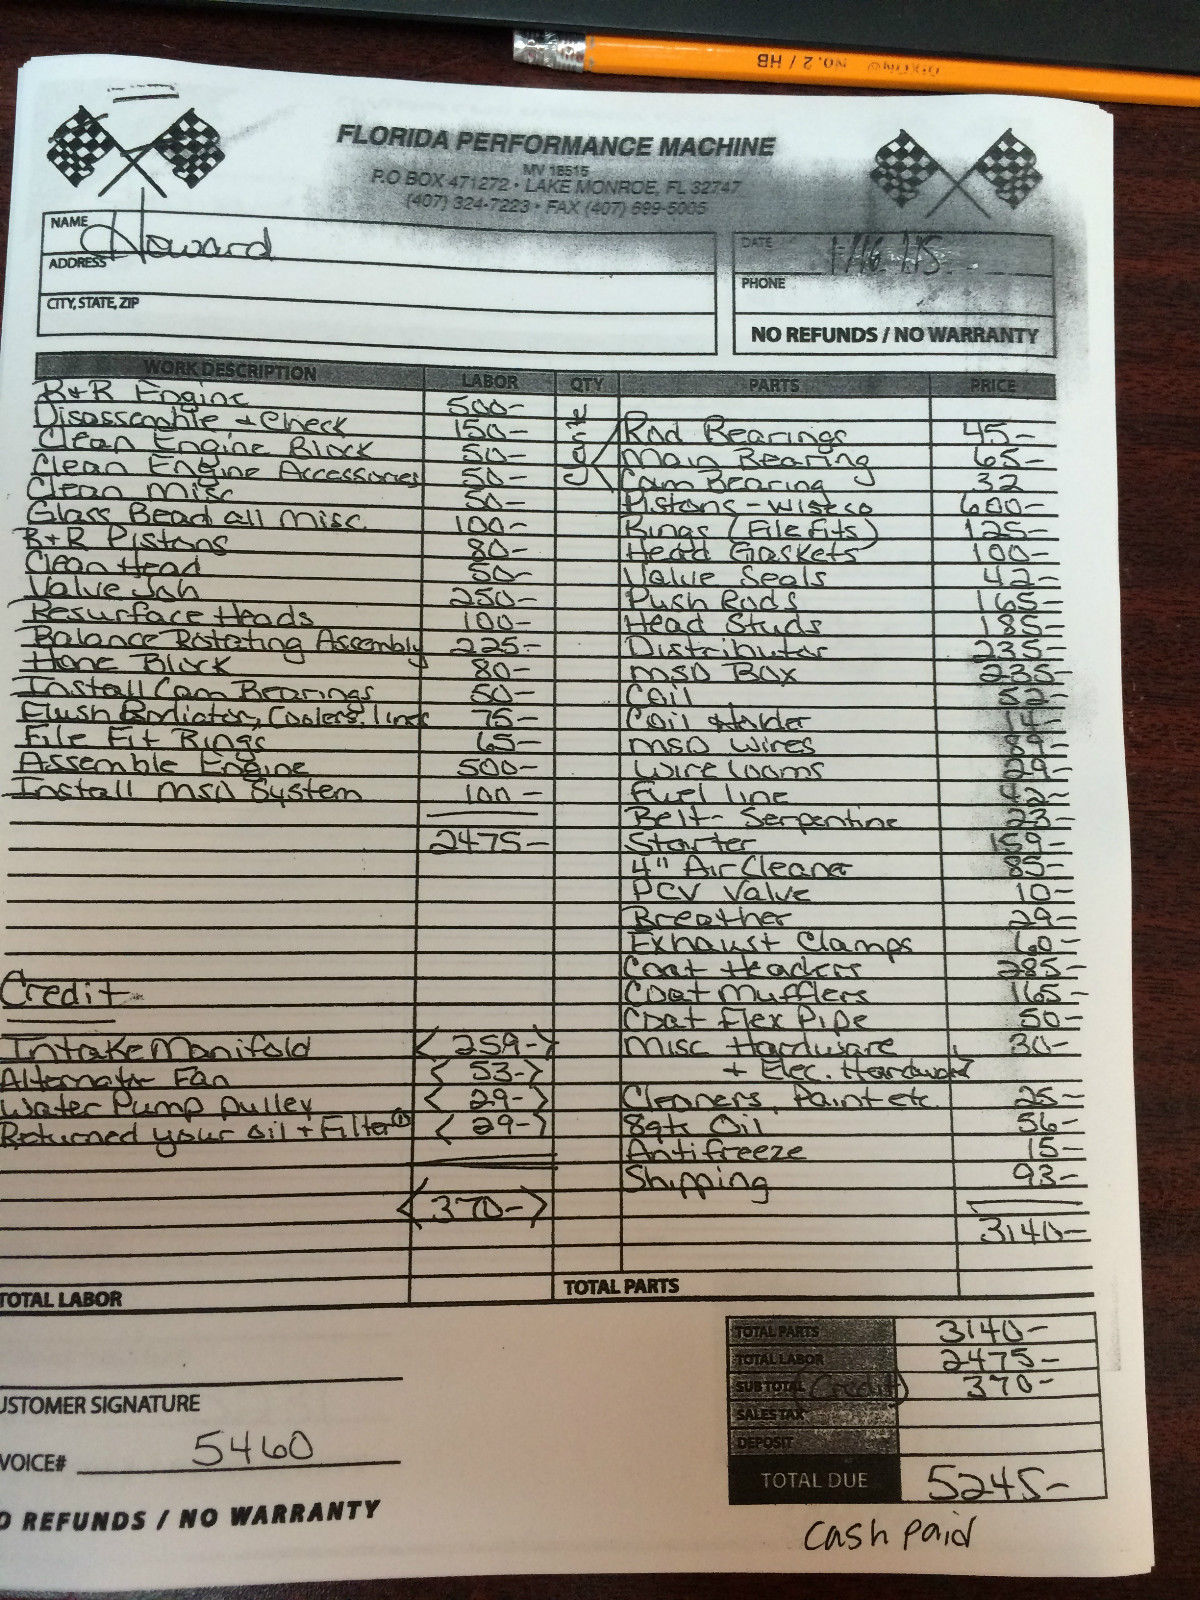 DIXON® NO.2 / HB
FLORIDA PERFORMANCE MACHINE
MV 18515
P.O BOX 471272 • LAKE MONROE, FL 32747
(407) 324-7223 • FAX (407) 699-5005
NAME Howard
ADDRESS
CITY, STATE, ZIP
DATE
PHONE
NO REFUNDS / NO WARRANTY
WORK DESCRIPTION LABOR QTY PARTS PRICE
R+R Engine 500-
Disassemble + Check 150- Rod Bearings 45-
Clean Engine Block 50- Main Bearing 65-
Clean Engine Accessories 50- Cam Bearing 32
Clean Misc 50- Pistons - Wiseco 600-
Glass Bead all Misc. 100- Rings (File Fits) 125-
R+R Pistons 80- Head Gaskets 100-
Clean Head 50- Valve Seals 42-
Valve Job 250- Push Rods 165-
Resurface Heads 100- Head Studs 185-
Balance Rotating Assembly 225- Distributor 235-
Hone Block 80- MSD Box 235-
Install Cam Bearings 50- Coil 52-
Flush Radiator, Coolers, lines 75- Coil Holder
File Fit Rings 65- MSD Wires 89-
Assemble Engine 500- Wire looms 29-
Install MSD System 100- Fuel line
Belt- Serpentine 23-
2475- Starter 159-
4" Air Cleaner 85-
PCV Valve 10-
Breather 29-
Exhaust Clamps 60-
Coat Headers 285-
Credit Coat Mufflers 165-
Coat Flex Pipe 50-
Intake Manifold < 259- > Misc Hardware 30-
Alternator Fan < 53- > + Elec. Hardware
Water Pump pulley < 29- > Cleaners, Paint etc. 25-
Returned your oil + Filter < 29- > 8qts Oil 56-
Antifreeze 15-
Shipping 93-
< 370- > 3140-
TOTAL LABOR TOTAL PARTS
TOTAL PARTS 3140-
TOTAL LABOR 2475-
SUB TOTAL (Credit) 370-
SALES TAX
DEPOSIT
TOTAL DUE 5245-
cash paid
USTOMER SIGNATURE
VOICE# 5460
O REFUNDS / NO WARRANTY